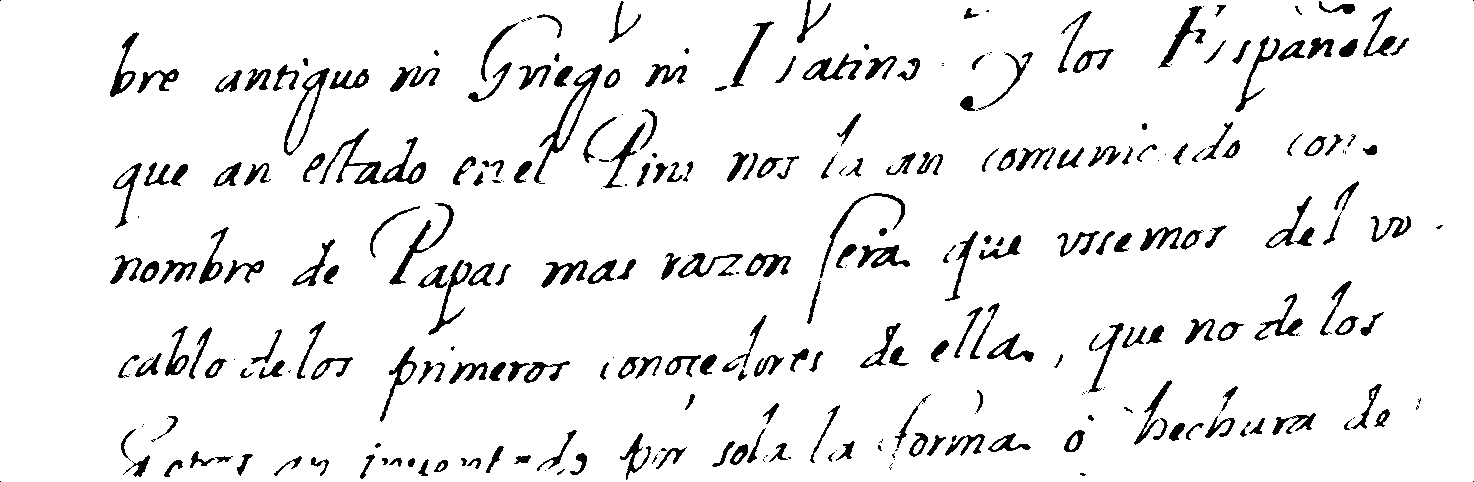 bre antiguo ni Griego ni Latino y los Españoles
que an estado en el Piru nos la an comunicado con
nombre de Papas mas razon sera que vssemos del vo
cablo de los primeros conocedores de ella, que no de los
an inuentado por sola la forma ò hechura de